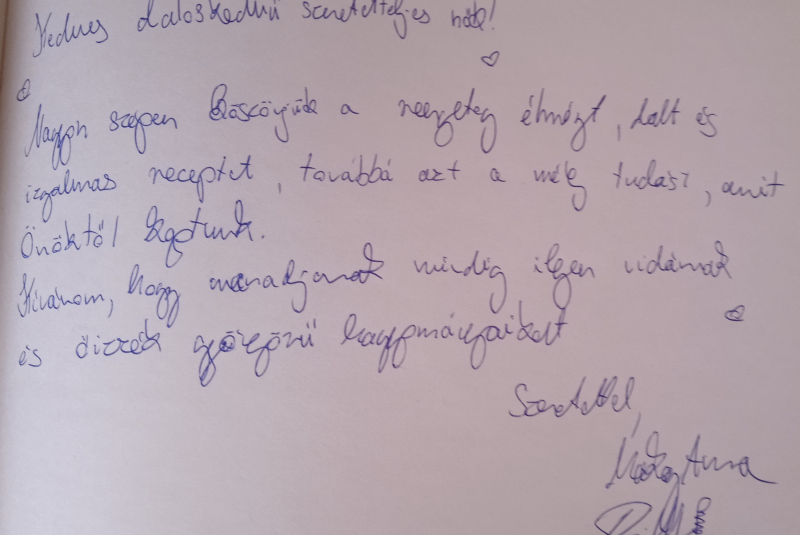 Kedves daloskedvű szeretetteljes nők!
Nagyon szépen köszönjük a rengeteg élményt, dalt és
izgalmas receptet, továbbá azt a mély tudást, amit
Önöktől kaptunk.
Kívánom, hogy maradjanak mindig ilyen vidámak
és őrizzék gyönyörű hagyományaikat
Szeretettel,
Anna